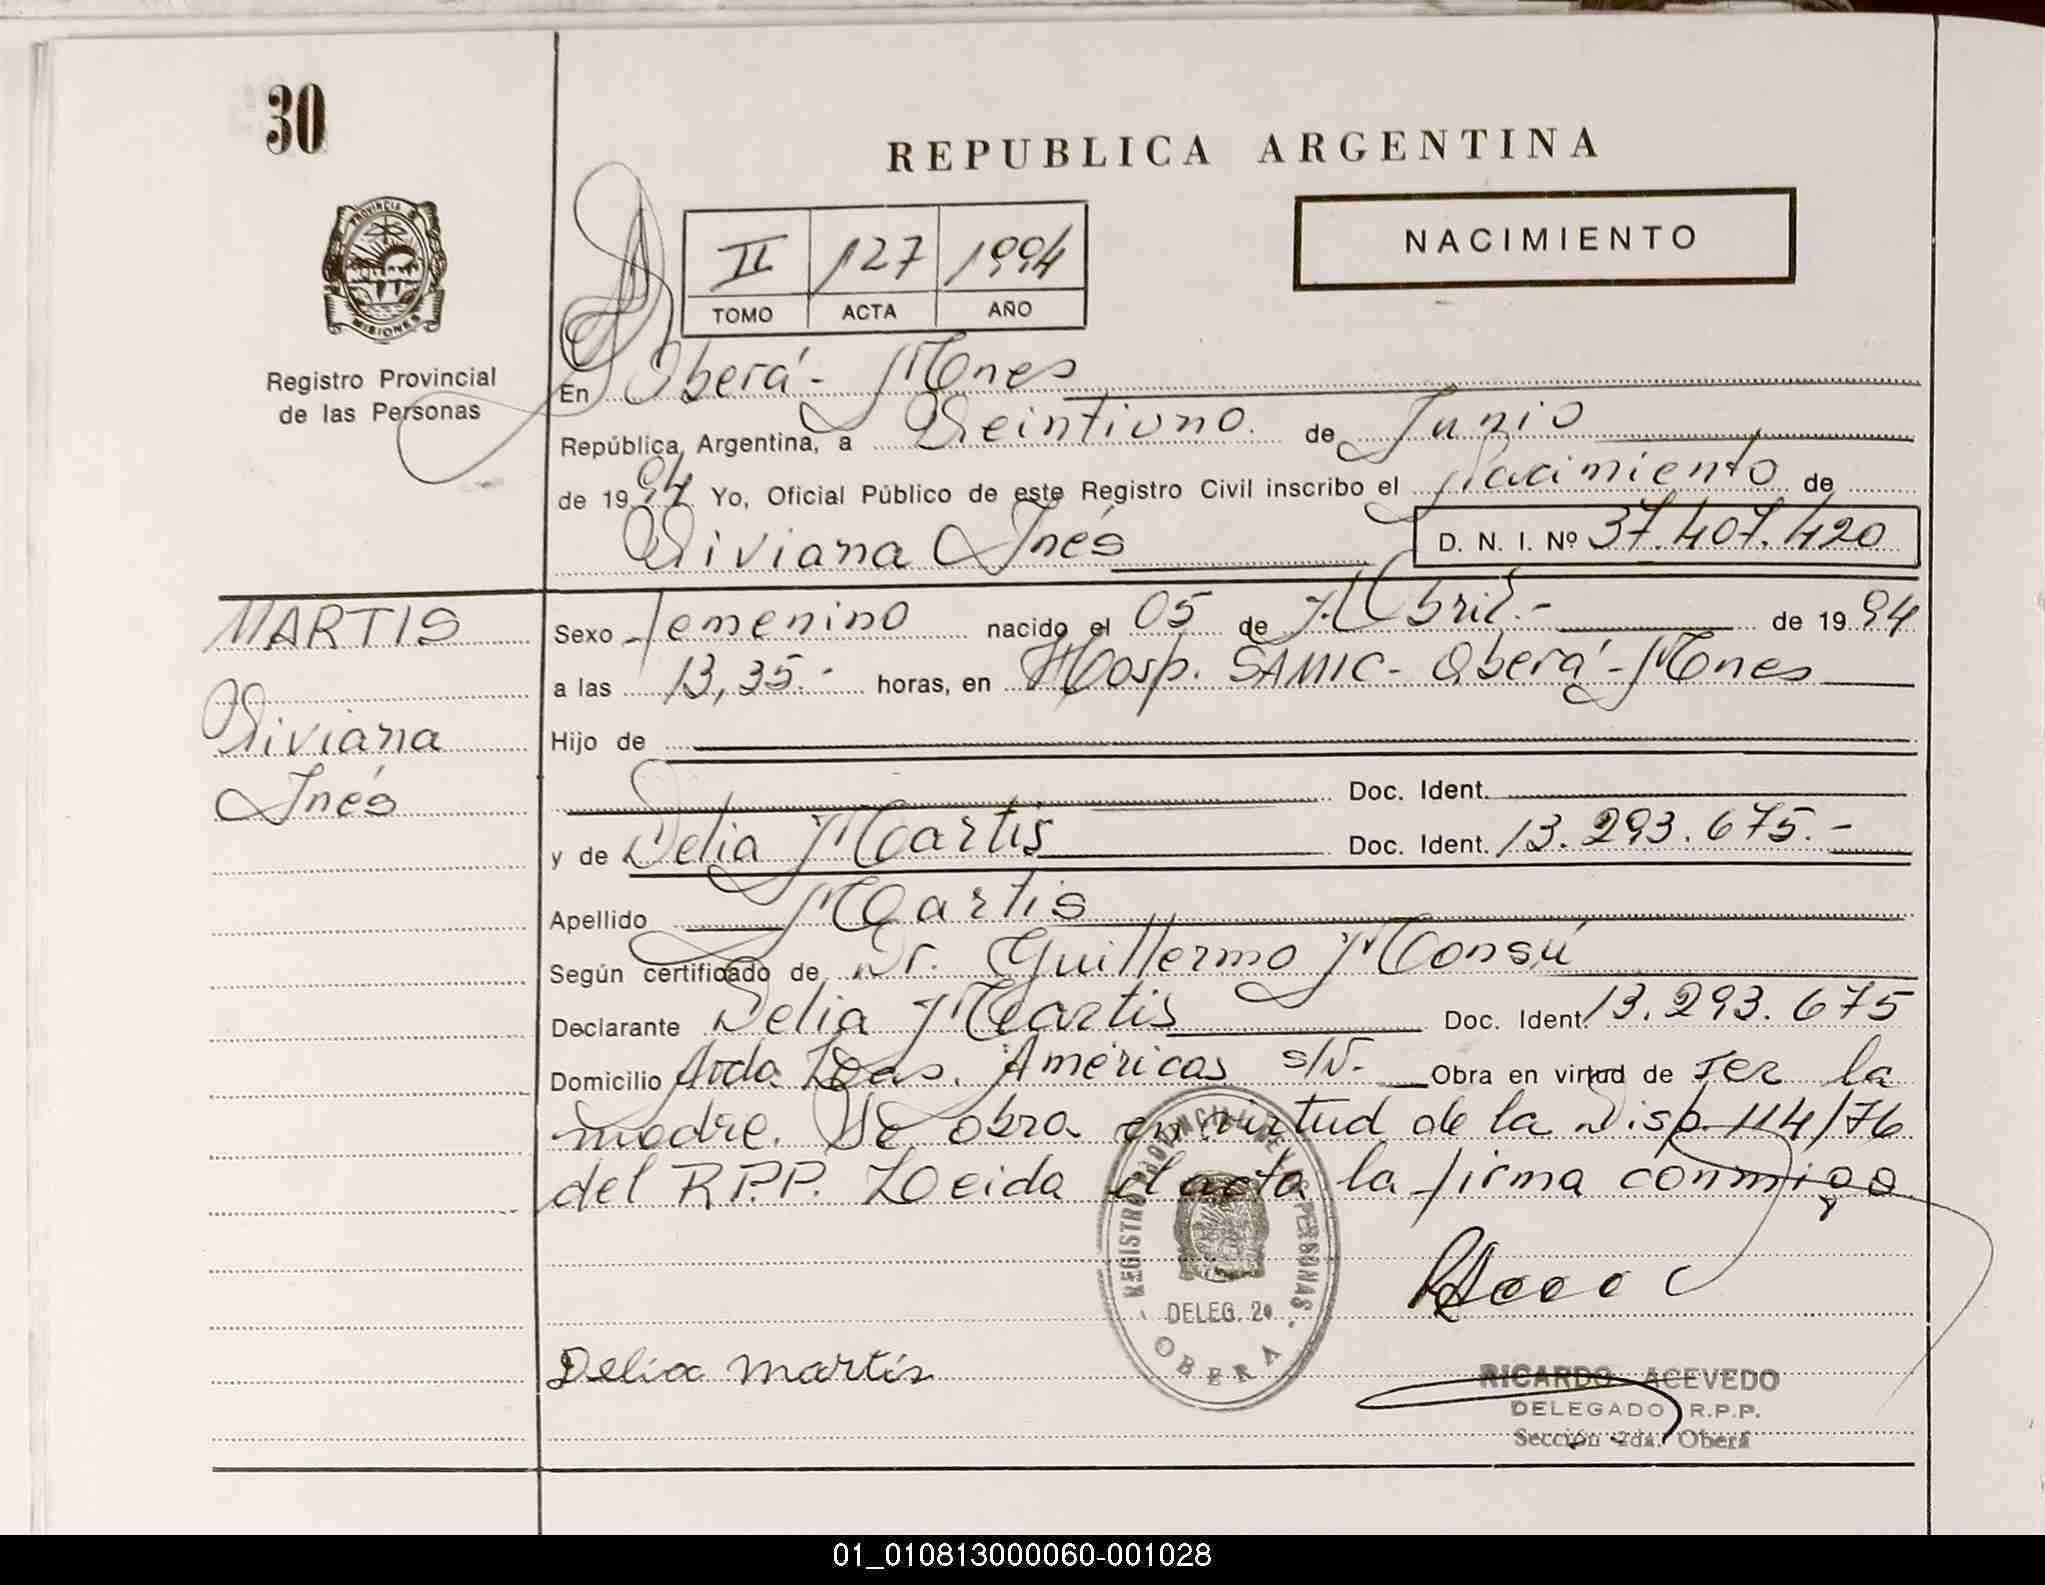 30
REPUBLICA ARGENTINA
NACIMIENTO
II 127 1994
TOMO ACTA AÑO
PROVINCIA D
MISIONES
Registro Provincial
de las Personas
En Oberá - Mnes
República Argentina, a Veintiuno. de Junio
de 1994 Yo, Oficial Público de este Registro Civil inscribo el Nacimiento de
Viviana Inés D. N. I. Nº 37.407.420
MARTIS
Viviana
Inés
Sexo Femenino nacido el 05 de Abril.- de 1994
a las 13,35.- horas, en Hosp. SAMIC - Oberá - Mnes
Hijo de
Doc. Ident.
y de Delia Martis Doc. Ident. 13.293.675.-
Apellido Martis
Según certificado de Dr. Guillermo Monsú
Declarante Delia Martis Doc. Ident. 13.293.675
Domicilio Avda. Las Américas s/N.- Obra en virtud de ser la
madre. Se obra en virtud de la Disp. 114/76
del R.P.P. Leida el acta la firma conmigo
REGISTRO PROVINCIAL DE LAS PERSONAS
DELEG. 2a
OBERA
Delia Martis
RICARDO ACEVEDO
DELEGADO R.P.P.
Sección 2da. Oberá
01_010813000060-001028